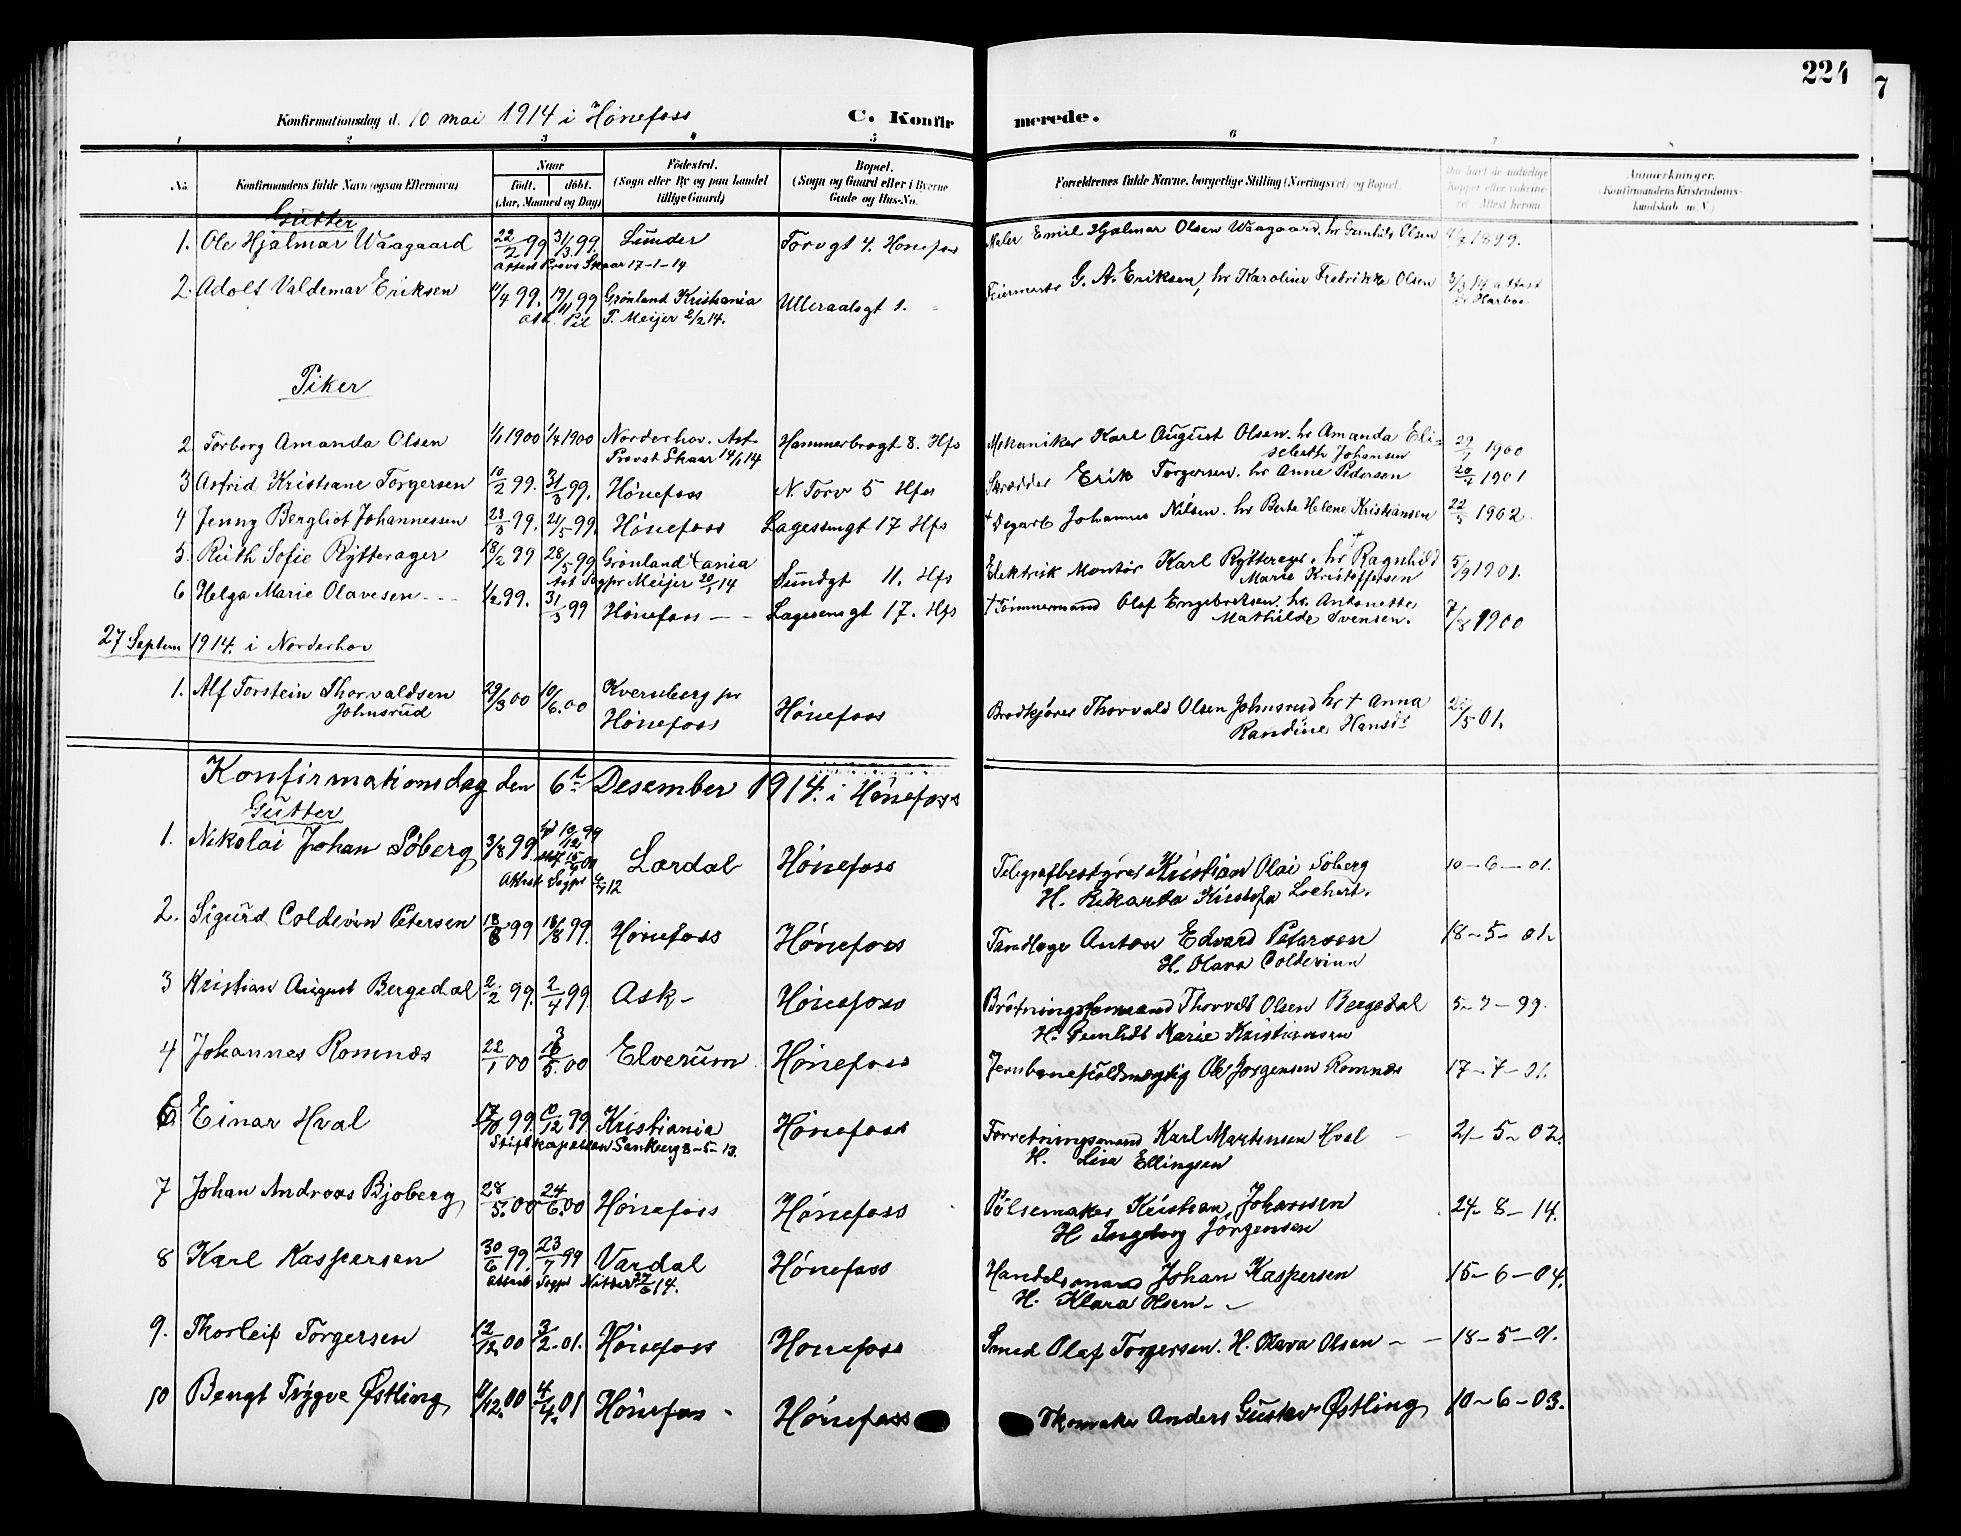 224
7
Konfirmationsdag d. 10 mai 1914 i Hønefoss C. Konfirmerede.
1 2 3 4 5 6 7 8
No. Konfirmandens fulde Navn (ogsaa Efternavn) Naar Födested. (Sogn eller By og paa Landet tillige Gaard) Bopæl. (Sogn og Gaard eller i Byerne Gade og Hus-No. Forældrenes fulde Navne, borgerlige Stilling (Næringsvei) og Bopæl. Om havt de naturlige Kopper eller vaccineret. Attest herom. Anmerkninger. (Konfirmandens Kristendomskundskab m. V.)
født. døbt. (Aar, Maaned og Dag)
Gutter
1. Ole Hjalmar Waagaard 22/2 99 31/3 99. Lunder Torvgt 4. Hønefos Maler Emil Hjalmar Olsen Waagaard. hr Gunhild Olsen 4/7 1899.
Attest Provst Skaar 17-1-14
2. Adolf Valdemar Eriksen 11/4 99. 19/11 99 Grønland Kristiania Ulleraalsgt 1. G. A. Eriksen, hr Karoline Fredrikke Olsen 3/3 14 attest dr Harboe
P. Meijer 2/2 14.
Piker
2 Torborg Amanda Olsen 1/1 1900 1/4 1900 Norderhov. Att. Hammerbrogt 8. Hfs Mekaniker Karl August Olsen. hr Amanda Elisebeth Johansen 29/7 1900
Provst Skaar 14/1 14
3 Astrid Kristiane Torgersen 10/2 99. 31/3 99. Hønefoss N. Torv 5 Hfs Skrædder Erik Torgersen. hr Anne Pedersen 20/4 1901
4 Jenny Bergliot Johannessen 23/3 99. 21/5 99. Hønefoss Lagesensgt 17 Hfs † Dagarb Johannes Nilsen. hr Berte Helene Kristiansen 22/5 1902.
5. Ruth Sofie Rytterager 18/2 99 28/5 99 Grønland Xania Sundgt 11. Hfs Elektrisk Montør Karl Rytterager. hr † Ragnhild Marie Kristoffersen 5/9 1901.
Att Sogpr Meijer 20/1 14
6 Helga Marie Olavesen 1/2 99. 31/3 99 Hønefoss Lagesensgt 17. Hfs † Tømmermand Olaf Engebretsen. hr. Antonette Mathilde Svensen. 7/8 1900
27 Septem 1914. i Norderhov
1. Alf Torstein Thorvaldsen Johnsrud 29/3 00 10/6. 00 Kvernberg pr Hønefoss Hønefoss Brødkjører Thorvald Olsen Johnsrud hr † Anna Randine Hansd. /5 01.
Konfirmationsdag den 6t Desember 1914. i Hønefoss
Gutter
1. Nikolai Johan Søberg 3/8 99. 10/12 99 Lærdal Hønefoss Telegrafbestyrer Kristian Olai Søberg 10-6-01.
Attest Sogpr 12 H. Rikarda Kristofa Lochert.
2. Sigurd Coldevin Petersen 18/6 99 18/8 99. Hønefoss Hønefoss Tandlæge Anton Edvard Petersen 18-5-01.
H. Olava Coldevin
3 Kristian August Bergedal 2/2 99. 2/4 99 Ask Hønefoss Brøtningsformand Thorvald Olsen Bergedal 5-7-99.
H. Gunhild Marie Kristiansen
4 Johannes Romnæs 22/1 00 3/5. 00 Elverum Hønefoss Jernbanefuldmægtig Ole Jørgensen Romnæs 17-7-01.
6 Einar Hval 17/10 99. 10/12 99 Kristiania Hønefoss Forretningsmand Karl Martinsen Hval 21-5-02.
Stiftskapellan Sandberg 8-5-13. H. Lisa Ellingsen
7 Johan Andreas Bjoberg 28/5. 00 24/6. 00 Hønefoss Hønefoss Pølsemaker Kristian Johanssen 24-8-14.
H Ingeborg Jørgensen
8 Karl Kaspersen 30/6 99. 23/7 99 Vardal Hønefoss Handelsmand Johan Kaspersen 15-6-04.
Attest Sogpr 14. H. Klara Olsen.
9. Thorleif Torgersen 12/12. 00 3/2. 01. Hønefoss Hønefoss Smed Olaf Torgersen. H. Olava Olsen 18-5-01.
10 Bengt Trygve Østling 11/12. 00 4/4. 01 Hønefos Hønefoss Skomaker Anders Gustav Østling 10-6-03.